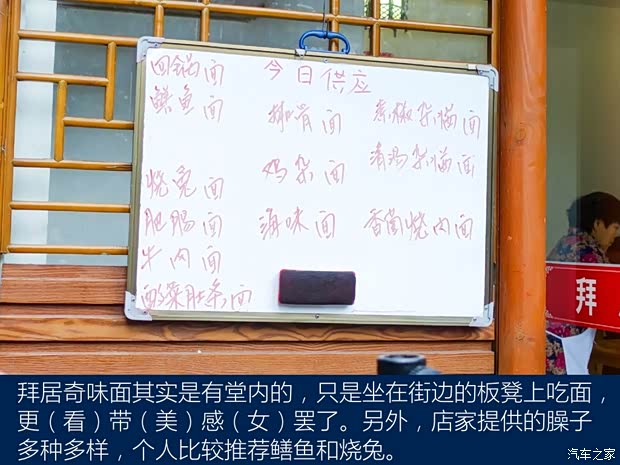 回锅面 今日供应
鳝鱼面 排骨面 素椒杂酱面
清汤杂酱面
烧兔面 鸡杂面
肥肠面 海味面 香菌烧肉面
牛肉面
酸菜肚条面
拜
拜居奇味面其实是有堂内的，只是坐在街边的板凳上吃面，
更（看）带（美）感（女）罢了。另外，店家提供的臊子
多种多样，个人比较推荐鳝鱼和烧兔。
汽车之家